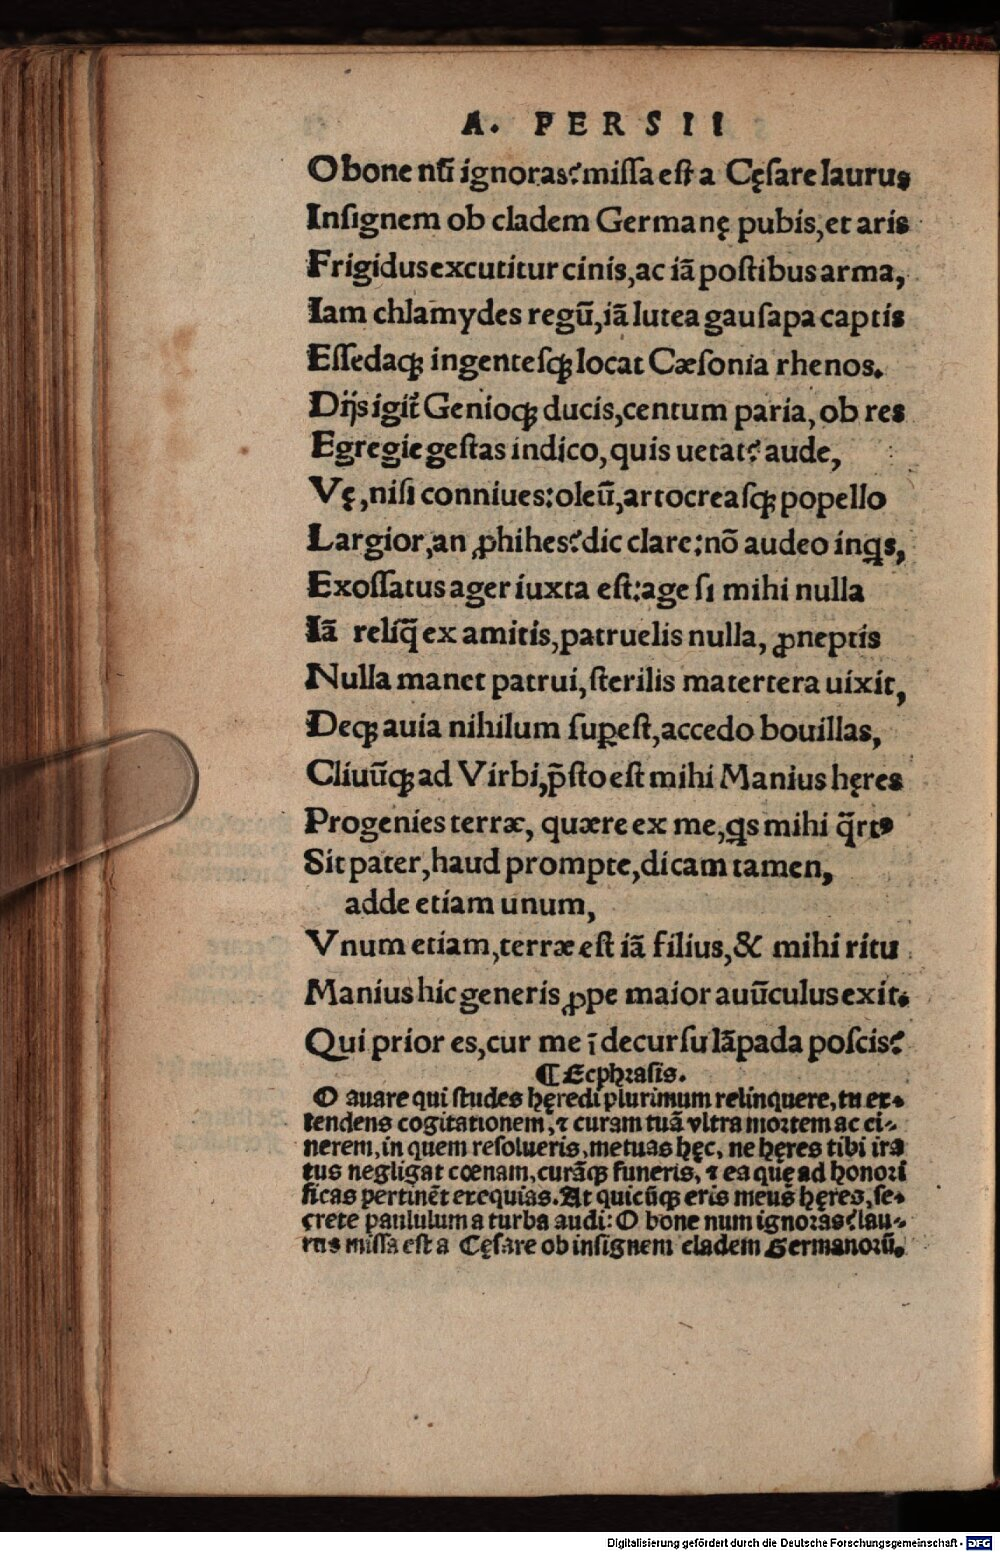 A. PERSII
O bone nũ ignoras? missa est a Cęsare laurus
Insignem ob cladem Germanę pubis, et aris
Frigidus excutitur cinis, ac iã postibus arma,
Iam chlamydes regũ, iã lutea gausapa captis
Essedaqꝫ ingentesqꝫ locat Cæsonia rhenos.
Dijs igit̃ Genioqꝫ ducis, centum paria, ob res
Egregie gestas indico, quis uetat? aude,
Vę, nisi conniues: oleũ, artocreasqꝫ popello
Largior, an ꝓhibes? dic clare: nõ audeo inqs,
Exossatus ager iuxta est: age si mihi nulla
Iã reliq̃ ex amitis, patruelis nulla, ꝓneptis
Nulla manet patrui, sterilis matertera uixit,
Deqꝫ auia nihilum suꝑest, accedo bouillas,
Cliuũqꝫ ad Virbi, p̃sto est mihi Manius hęres
Progenies terræ, quære ex me, qs mihi q̃rtꝰ
Sit pater, haud prompte, dicam tamen,
adde etiam unum,
Vnum etiam, terræ est iã filius, & mihi ritu
Manius hic generis ꝓpe maior auũculus exit.
Qui prior es, cur me ĩ decursu lãpada poscis?
¶ Ecphrasis.
O auare qui studes hęredi plurimum relinquere, tu ex-
tendens cogitationem, ⁊ curam tuã vltra mortem ac ci-
nerem, in quem resolueris, metuas hęc, ne hęres tibi ira
tus negligat cœnam, curãqꝫ funeris, ⁊ ea quę ad honori
ficas pertinẽt exequias. At quicũqꝫ eris meus hęres, se-
crete paululum a turba audi: O bone num ignoras? lau-
rus missa est a Cęsare ob insignem cladem Germanorũ.
Digitalisierung gefördert durch die Deutsche Forschungsgemeinschaft - DFG